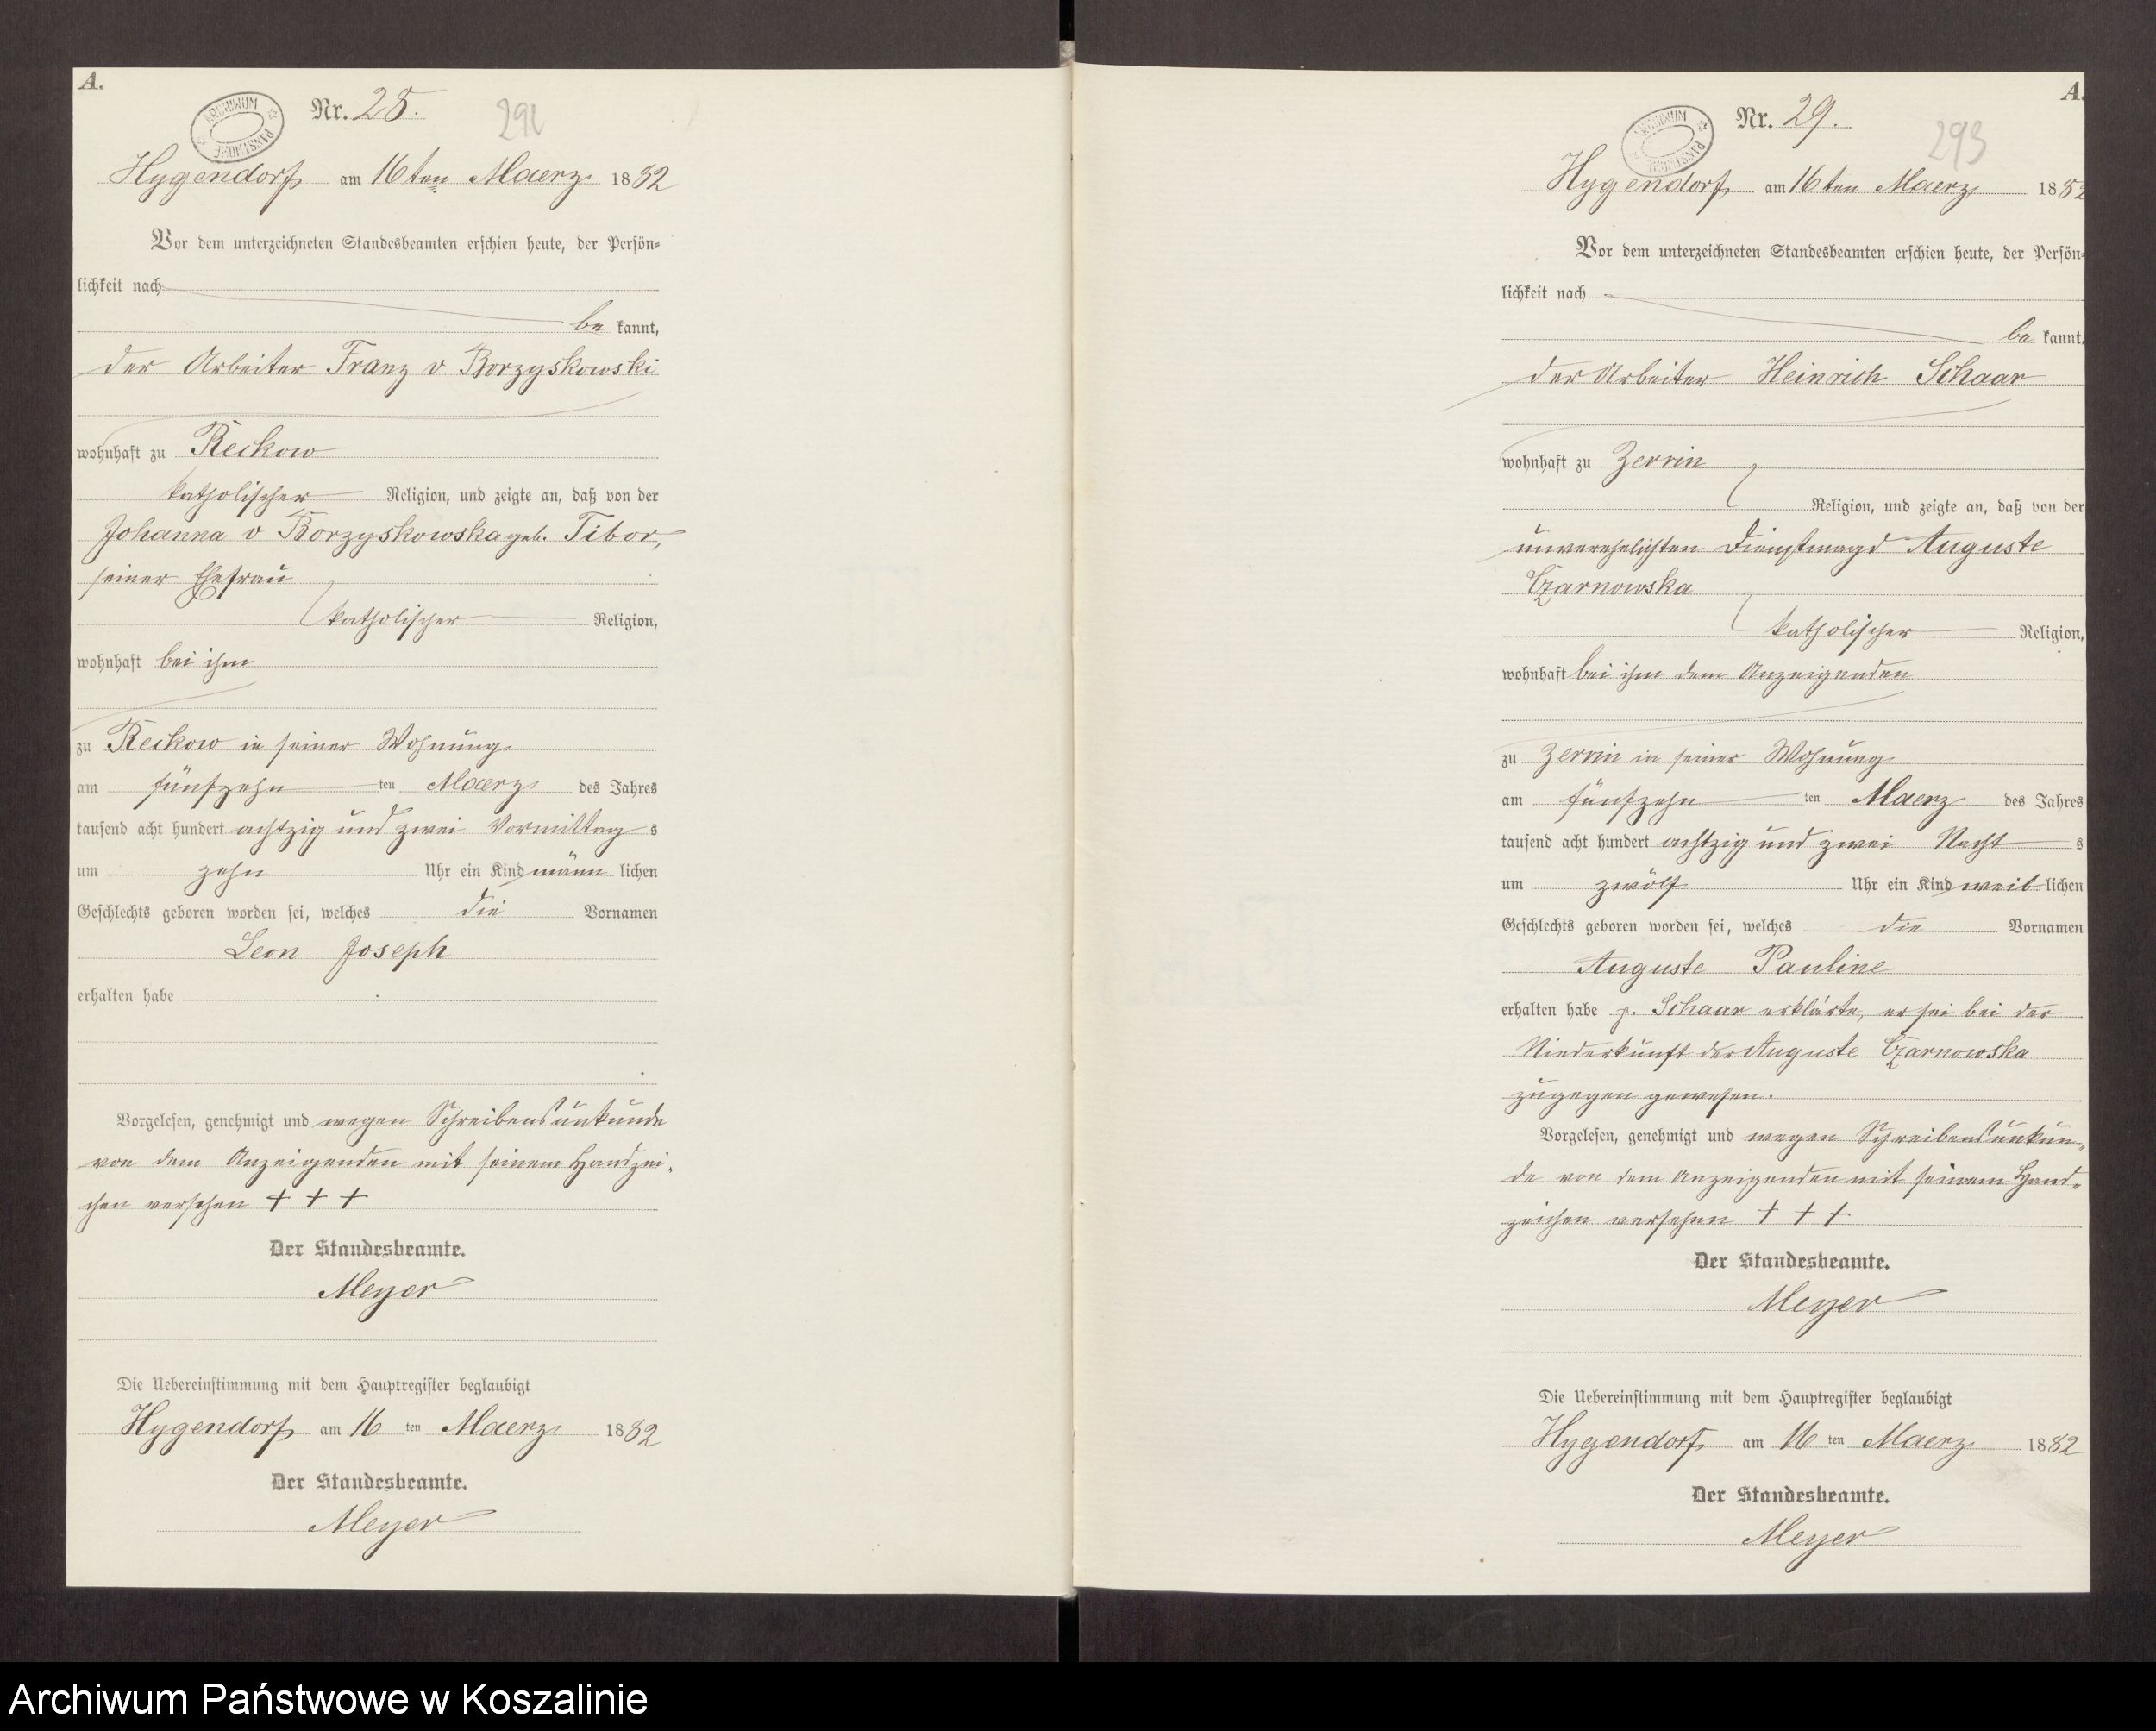 A.
ARCHIWUM PAŃSTWOWE
Nr. 28.
292
Hygendorf am 16ten Maerz 1882
Vor dem unterzeichneten Standesbeamten erschien heute, der Persön-
lichkeit nach
be kannt,
der Arbeiter Franz v Borzyskowski
wohnhaft zu Reckow
katholischer Religion, und zeigte an, daß von der
Johanna v Borzyskowska geb. Tibor,
seiner Ehefrau
katholischer Religion,
wohnhaft bei ihm
zu Reckow in seiner Wohnung
am fünfzehn ten Maerz des Jahres
tausend acht hundert achtzig und zwei Vormittag s
um zehn Uhr ein Kind männ lichen
Geschlechts geboren worden sei, welches die Vornamen
Leon Joseph
erhalten habe
Vorgelesen, genehmigt und wegen Schreibensunkunde
von dem Anzeigenden mit seinem Handzei-
chen versehen + + +
Der Standesbeamte.
Meyer
Die Uebereinstimmung mit dem Hauptregister beglaubigt
Hygendorf am 16 ten Maerz 1882
Der Standesbeamte.
Meyer
A.
ARCHIWUM PAŃSTWOWE
Nr. 29.
293
Hygendorf am 16ten Maerz 1882
Vor dem unterzeichneten Standesbeamten erschien heute, der Persön-
lichkeit nach
be kannt,
der Arbeiter Heinrich Schaar
wohnhaft zu Zerrin
Religion, und zeigte an, daß von der
unverehelichten Dienstmagd Auguste
Czarnowska
katholischer Religion,
wohnhaft bei ihm dem Anzeigenden
zu Zerrin in seiner Wohnung
am fünfzehn ten Maerz des Jahres
tausend acht hundert achtzig und zwei Nacht s
um zwölf Uhr ein Kind weib lichen
Geschlechts geboren worden sei, welches die Vornamen
Auguste Pauline
erhalten habe p. Schaar erklärte, er sei bei der
Niederkunft der Auguste Czarnowska
zugegen gewesen.
Vorgelesen, genehmigt und wegen Schreibensunkun-
de von dem Anzeigenden mit seinem Hand-
zeichen versehen + + +
Der Standesbeamte.
Meyer
Die Uebereinstimmung mit dem Hauptregister beglaubigt
Hygendorf am 16 ten Maerz 1882
Der Standesbeamte.
Meyer
Archiwum Państwowe w Koszalinie